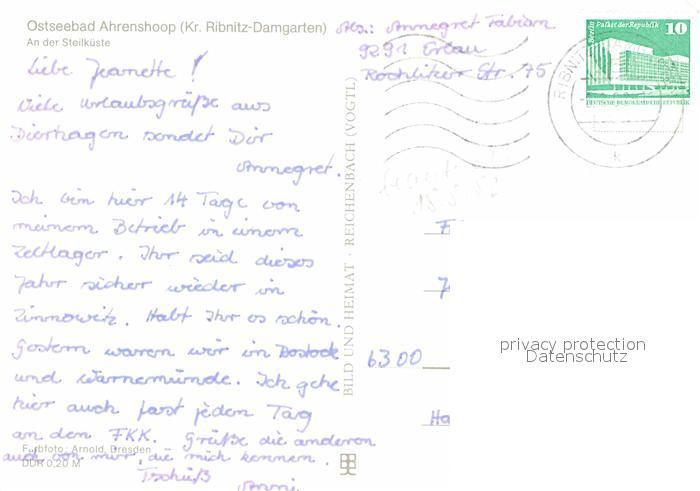 Ostseebad Ahrenshoop (Kr. Ribnitz-Damgarten)
An der Steilküste
Liebe Jeanette!
Viele Urlaubsgrüße aus
Dierhagen sendet Dir
Annegret.
Ich bin hier 14 Tage von
meinem Betrieb in einem
Zeltlager. Ihr seid dieses
Jahr sicher wieder in
Zinnowitz. Habt Ihr es schön.
Gestern waren wir in Rostock
und Warnemünde. Ich gehe
hier auch fast jeden Tag
an den FKK. Grüße die anderen
auch von mir, die mich kennen.
Tschüß
Anni
Farbfoto: Arnold, Dresden
DDR 0,20 M
BILD UND HEIMAT · REICHENBACH (VOGTL)
Abs.: Annegret Fabian
9291 Erlau
Rochlitzer Str. 75
Berlin Palast der Republik
10
DEUTSCHE DEMOKRATISCHE REPUBLIK
RIBNITZ
k
F
7
6300
Ha
privacy protection
Datenschutz